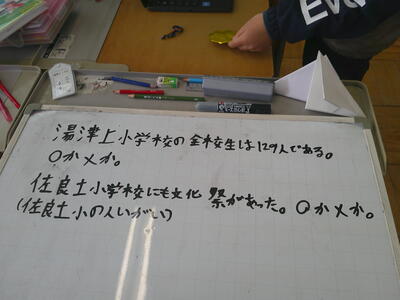 湯津上小学校の全校生は129人である。
〇か×か。
佐良土小学校にも文化祭があった。〇か×か。
(佐良土小の人いがい)